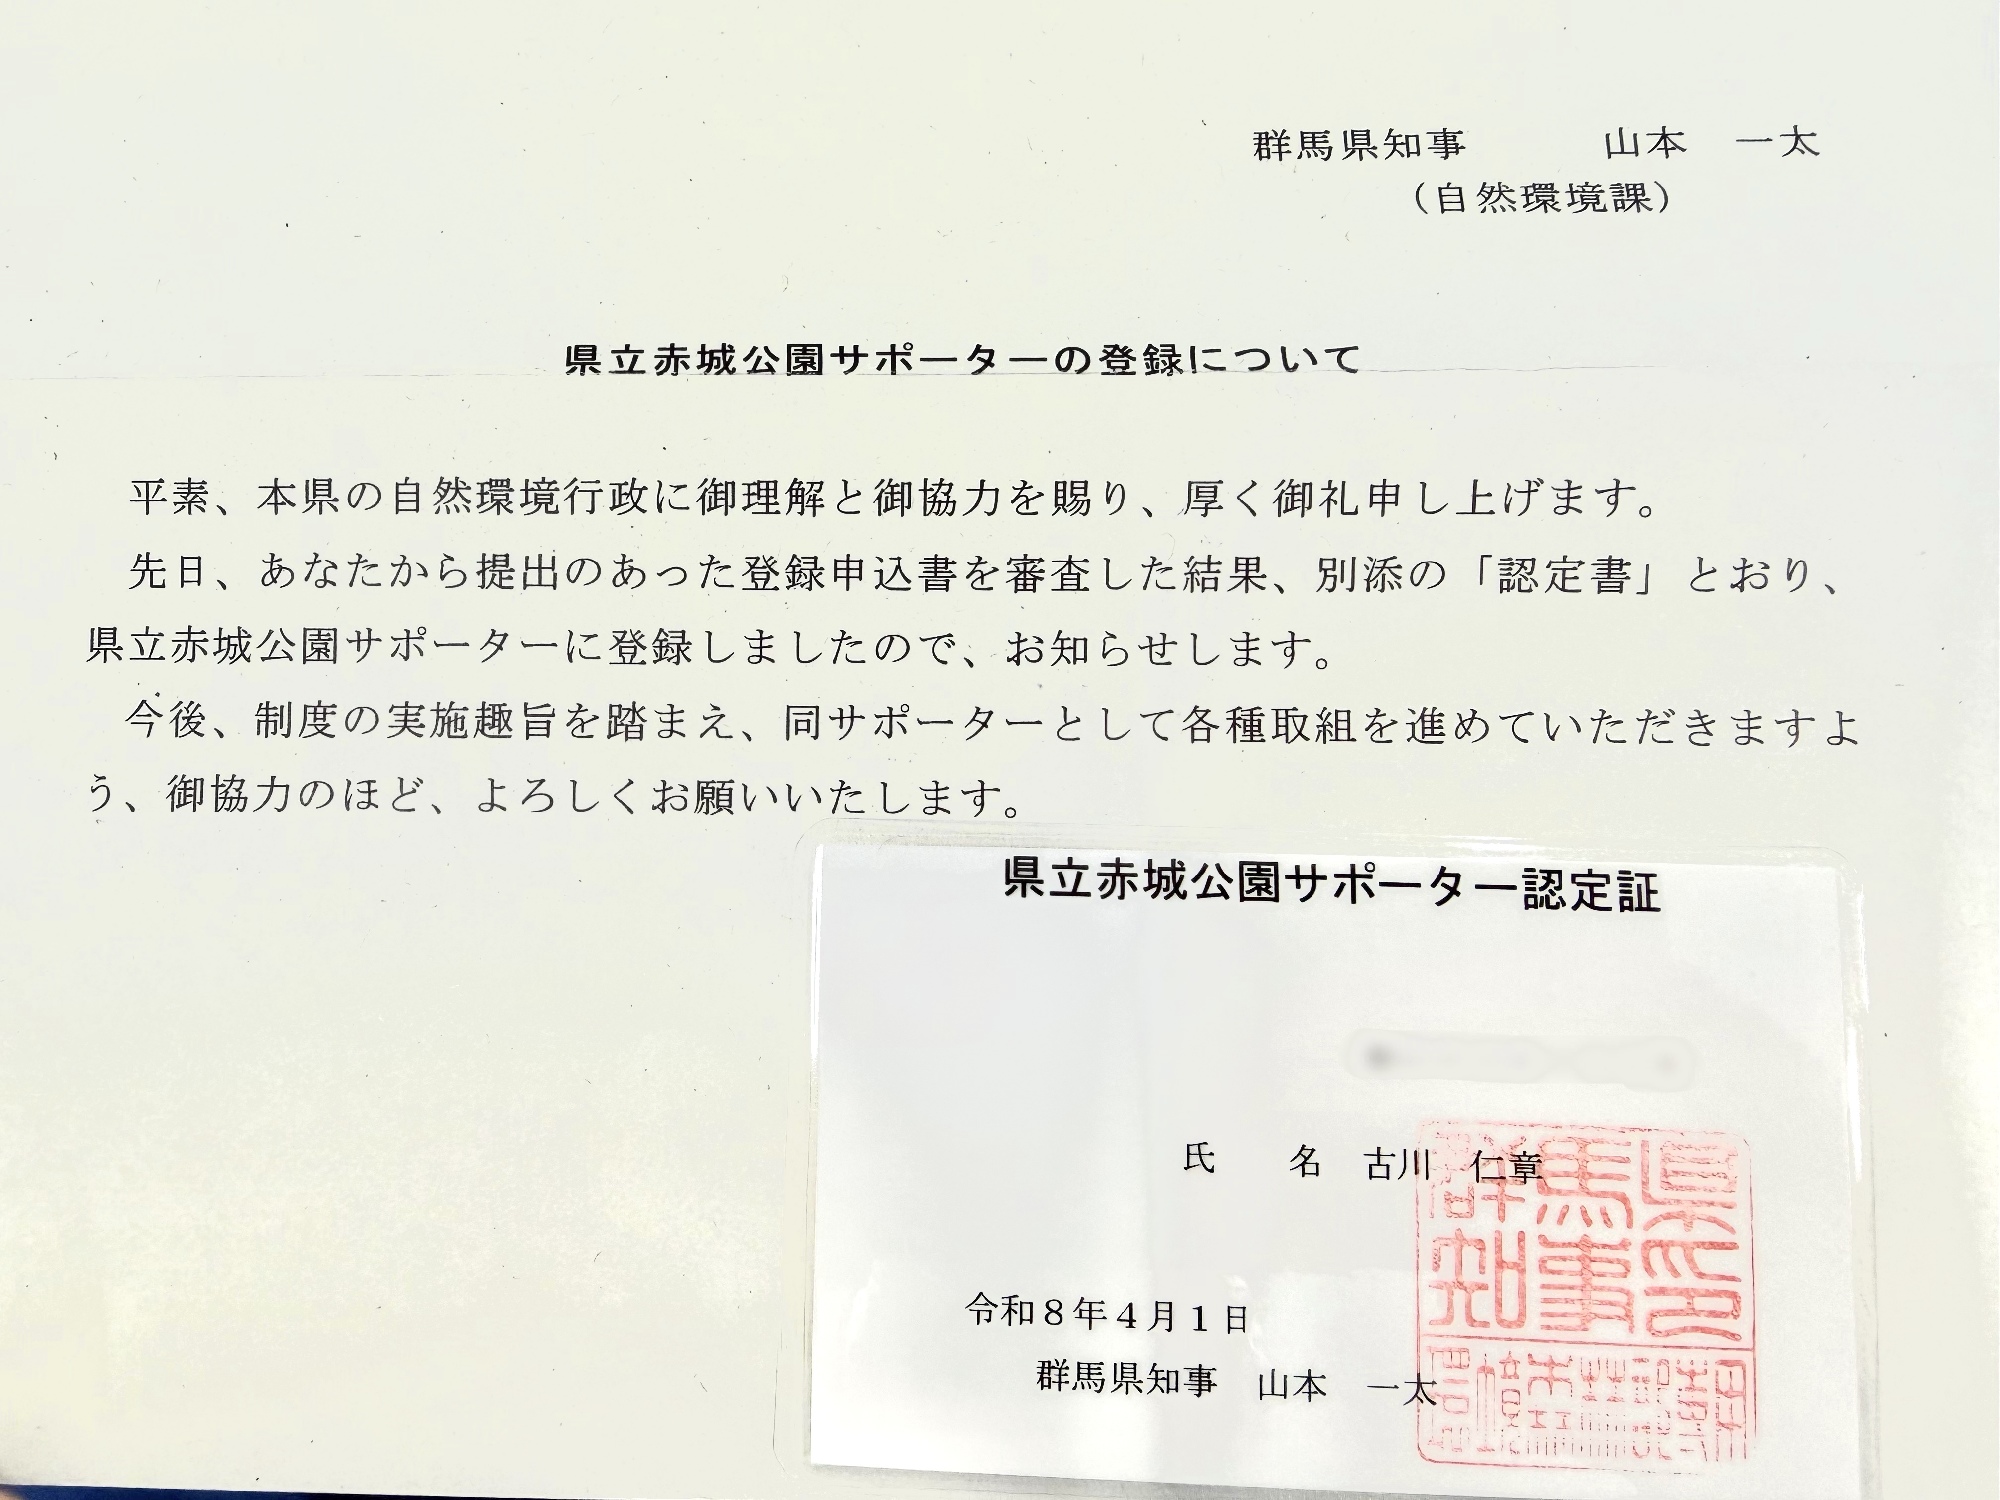 群馬県知事　　　山本　一太
（自然環境課）
県立赤城公園サポーターの登録について
平素、本県の自然環境行政に御理解と御協力を賜り、厚く御礼申し上げます。
先日、あなたから提出のあった登録申込書を審査した結果、別添の「認定書」とおり、
県立赤城公園サポーターに登録しましたので、お知らせします。
今後、制度の実施趣旨を踏まえ、同サポーターとして各種取組を進めていただきますよ
う、御協力のほど、よろしくお願いいたします。
県立赤城公園サポーター認定証
氏　　名　古川　仁章
令和８年４月１日
群馬県知事　山本　一太
群馬県知事印